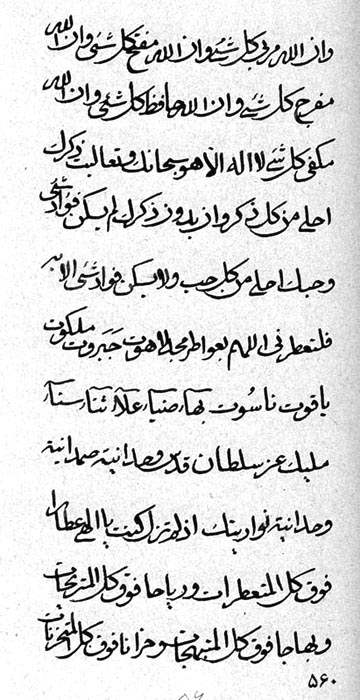 وان الله مربی كل شئ وان الله مفتح كل شئ وان الله
مفرج كل شئ وان الله حافظ كل شئ وان الله
مكفی كل شئ لا اله الا هو سبحانك وتعاليت ذكرك
احلی من كل ذكر و ان بدون ذكرك لم يسكن فواد شئ
وحبك احلی من كل حب ولا يسكن فواد شئ الا به
فلتعطرنی اللهم بعواطر مجد لاهوت جبروت ملكوت
ياقوت ناسوت بهاء ضياء علاء ثناء سناء
مليك عز سلطان قدس وحدانية صمدانية
وحدانية نوارينك اذ لم تزل كنت يا الهی عطارا
فوق كل المتعطرات ورياحا فوق كل المتريحات
وبهاجا فوق كل المتبهجات وحزانا فوق كل المتحزنات
۵۶۰